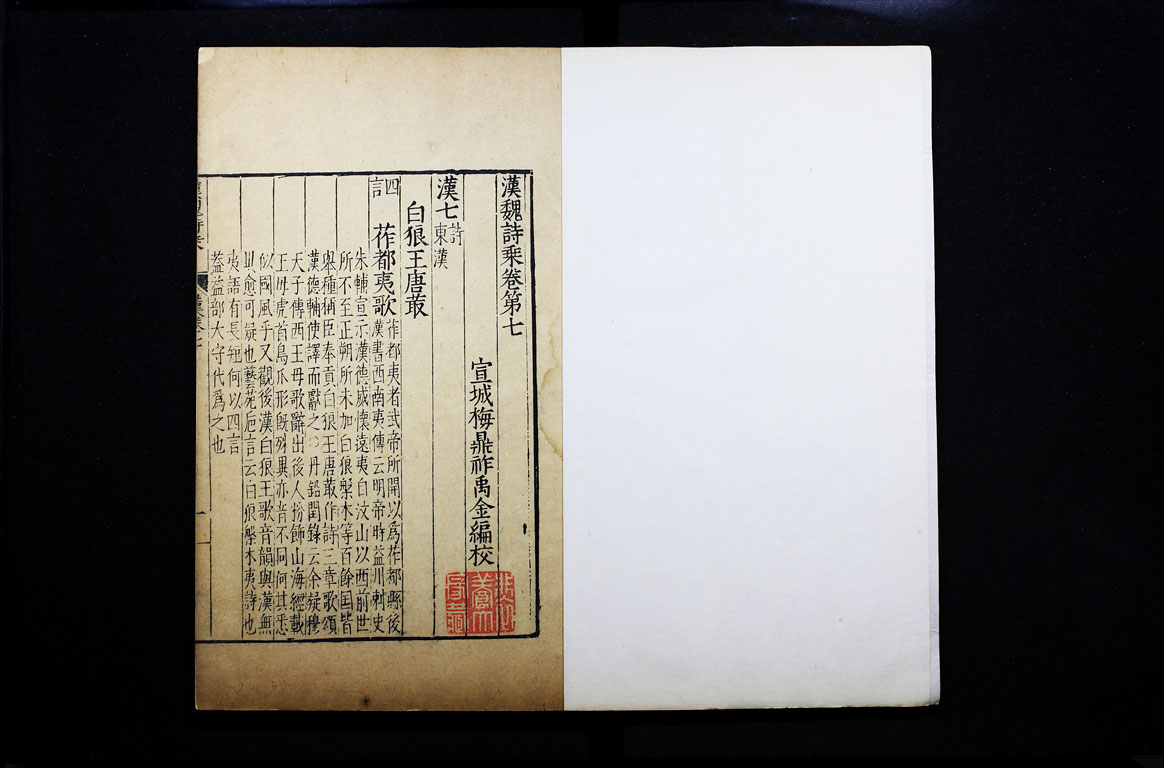 漢魏詩乘卷第七
宣城梅鼎祚禹金編校
漢七 詩 東漢
白狼王唐菆
四言 莋都夷歌 莋都夷者武帝所開以爲莋都縣後
漢書西南夷傳云明帝時益州刺史
朱輔宣示漢德威懷遠夷自汶山以西前世
所不至正朔所未加白狼槃木等百餘国皆
舉種稱臣奉貢白狼王唐菆作詩三章歌頌
漢德輔使譯而獻之○丹鉛閏錄云余疑穆
天子傳西王母歌辭出後人扮飾山海經載
王母虎首鳥爪形旣殊異亦音不同何其悉
似國風乎又觀後漢白狼王歌音韻與漢無
㠯愈可疑也藝苑巵言云白狼槃木夷詩也
夷語有長短何以四言
葢益部大守代爲之也